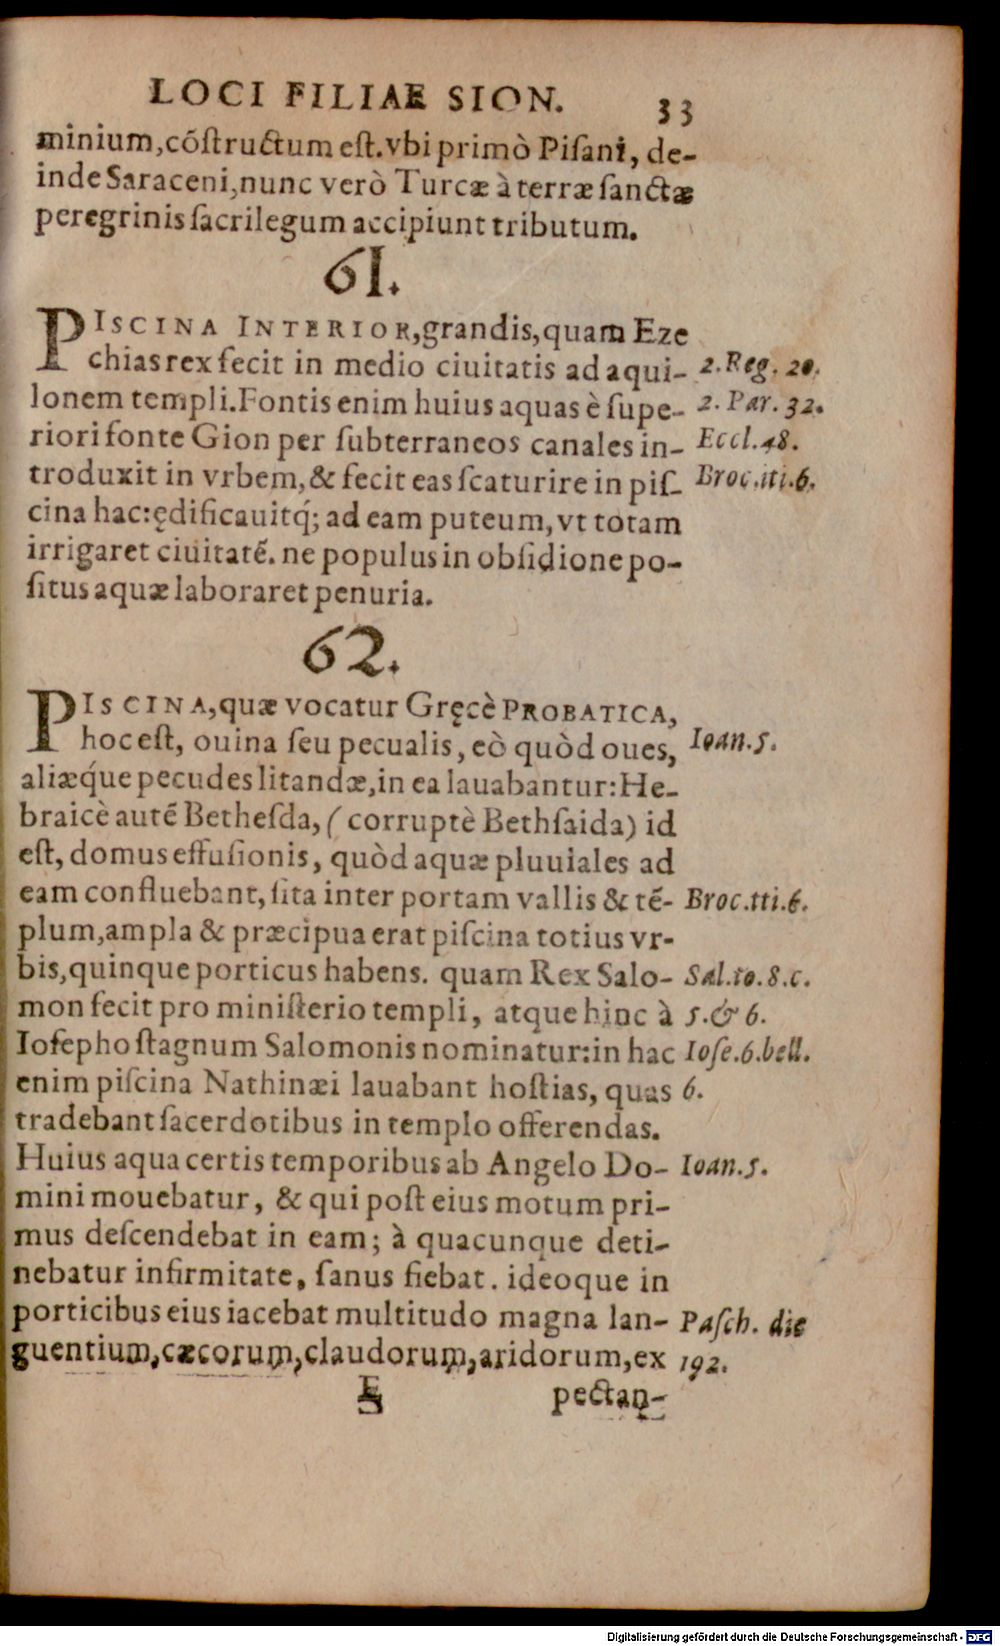 LOCI FILIAE SION. 33
minium,cõſtructum eſt.vbi primò Piſani, de-
inde Saraceni,nunc verò Turcæ à terræ ſanctæ
peregrinis ſacrilegum accipiunt tributum.
61.
PISCINA INTERIOR,grandis,quam Eze
chias rex fecit in medio ciuitatis ad aqui- 2.Reg. 20.
lonem templi.Fontis enim huius aquas è ſupe- 2. Par. 32.
riori fonte Gion per ſubterraneos canales in- Eccl.48.
troduxit in vrbem,& fecit eas ſcaturire in piſ- Broc.iti.6.
cina hac:ędificauitq́; ad eam puteum,vt totam
irrigaret ciuitatẽ. ne populus in obſidione po-
ſitus aquæ laboraret penuria.
62.
PISCINA,quæ vocatur Gręcè PROBATICA,
hoc eſt, ouina ſeu pecualis, eò quòd oues, Ioan.5.
aliæq́ue pecudes litandæ,in ea lauabantur:He-
braicè autẽ Betheſda, (corruptè Bethſaida) id
eſt, domus effuſionis, quòd aquæ pluuiales ad
eam confluebant, ſita inter portam vallis & tẽ- Broc.iti.6.
plum,ampla & præcipua erat piſcina totius vr-
bis,quinque porticus habens. quam Rex Salo- Sal.to.8.c.
mon fecit pro miniſterio templi, atque hinc à 5.& 6.
Ioſepho ſtagnum Salomonis nominatur:in hac Ioſe.6.bell.
enim piſcina Nathinæi lauabant hoſtias, quas 6.
tradebant ſacerdotibus in templo offerendas.
Huius aqua certis temporibus ab Angelo Do- Ioan.5.
mini mouebatur, & qui poſt eius motum pri-
mus deſcendebat in eam; à quacunque deti-
nebatur infirmitate, ſanus fiebat. ideoque in
porticibus eius iacebat multitudo magna lan- Paſch. die
guentium,cæcorum,claudorum,aridorum,ex 192.
E pectan-
Digitalisierung gefördert durch die Deutsche Forschungsgemeinschaft - DFG